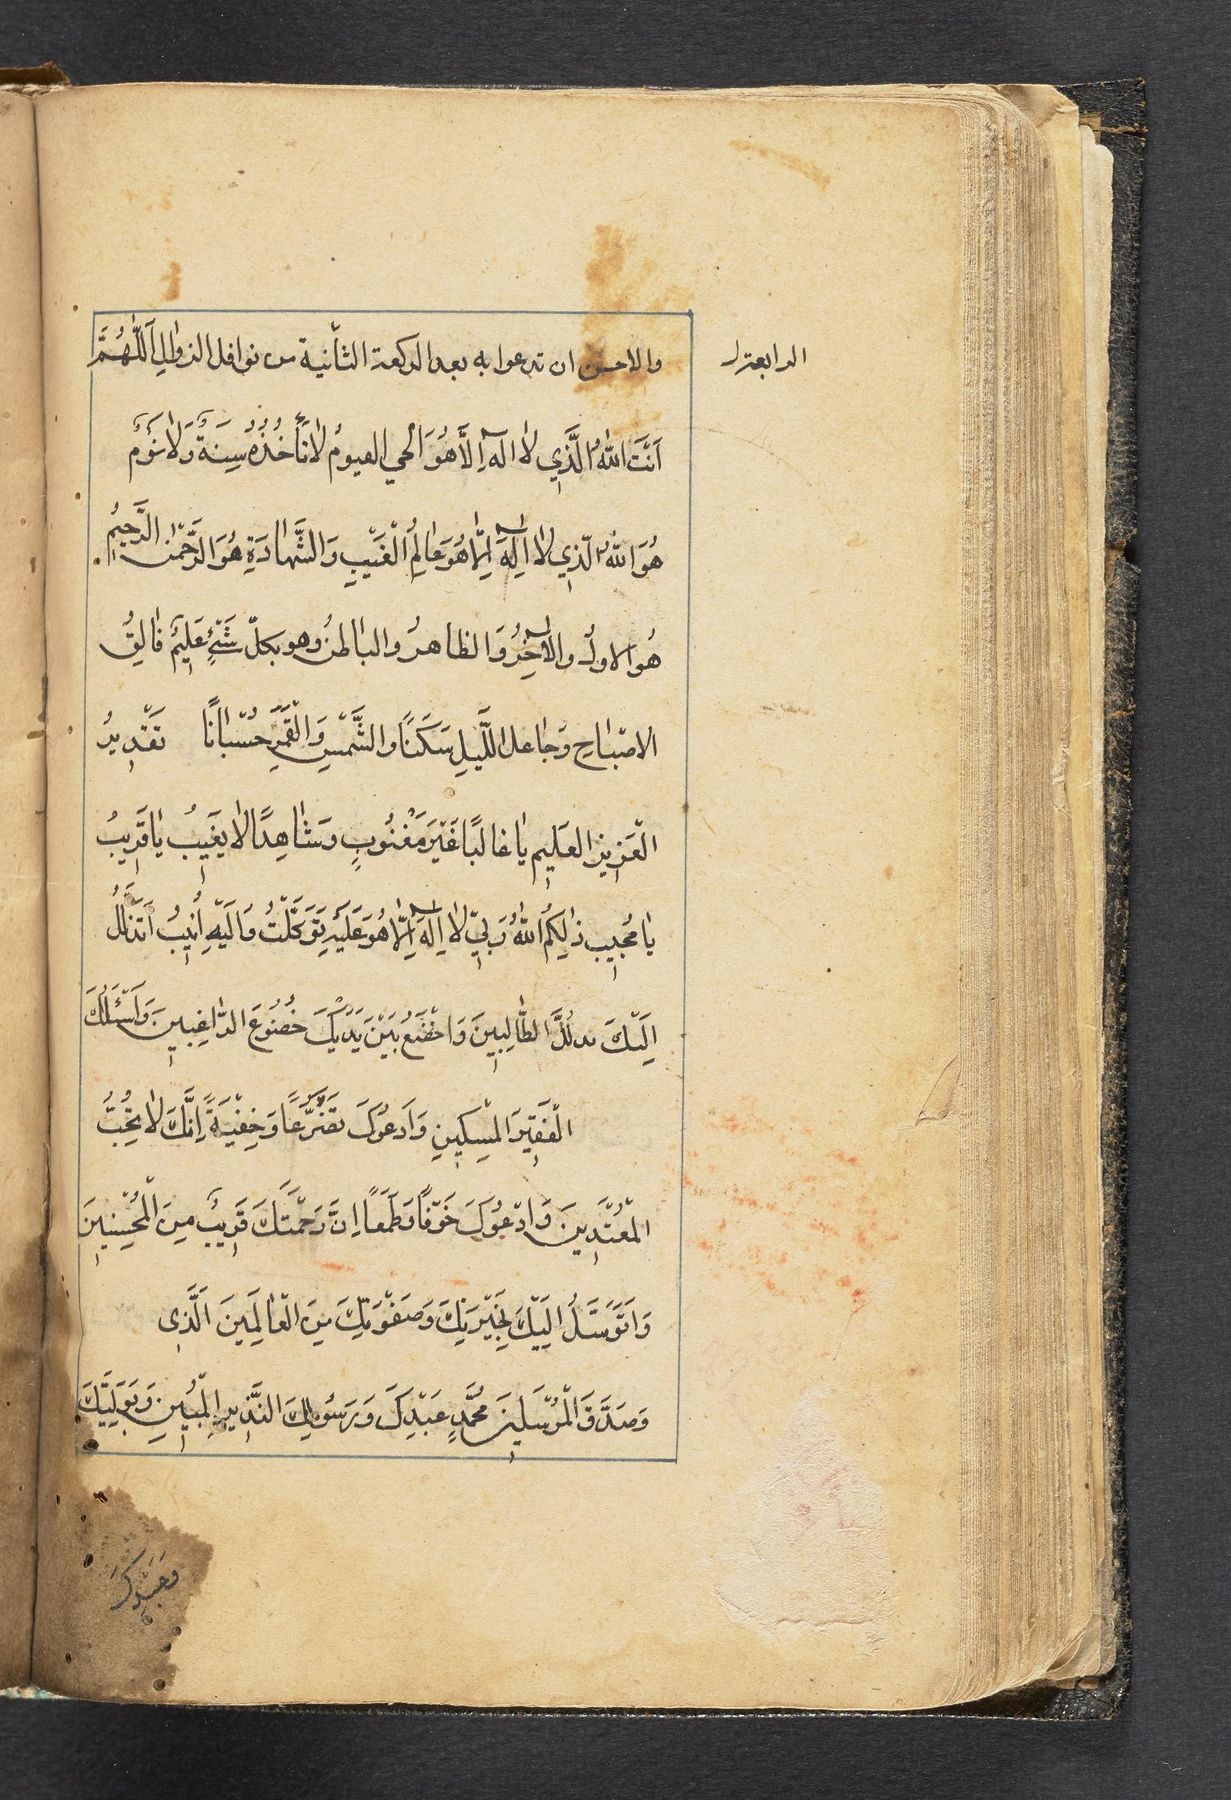 والاحسن ان تدعوا به بعد الركعة الثانية من نوافل الزوال اَللّٰهُمَّ
الرابعة
اَنْتَ اللّٰهُ الَّذِي لاٰ اِلٰهَ اِلَّا هُوَ الحي القيومُ لاٰ تَأْخُذُهُ سِنَةٌ وَلاٰ نَوْمٌ
هُوَ اللّٰهُ الَّذِي لاٰ اِلٰهَ اِلّاٰ هُوَ عٰالِمُ الْغَيْبِ وَالشَّهٰادَةِ هُوَ الرَّحْمٰنُ الرَّحيٖمُ
هُوَ الاولُ والْآخِرُ وَالظاهرُ والبٰاطنُ وهو بكلّ شَيْءٍ عَليٖمٌ فٰالِقُ
الاصْبٰاحِ وَجٰاعل اللَّيلِ سَكَنًا والشَّمْسِ وَالْقَمَرِ حُسْبٰانًا تَقْديٖرُ
الْعَزيٖز العَليٖم يٰا غالبًا غَيْرَ مَغْلُوبٍ وَشٰاهِدًا لاٰ يَغيٖبُ يٰا قَريٖبُ
يٰا مُجيٖب ذٰلِكُمُ اللّٰهُ رَبّيٖ لاٰ اِلٰهَ اِلّاٰ هُوَ عَلَيْهِ تَوَكَّلْتُ وَاِلَيْهِ اُنيٖبُ اَتَذَلَّلُ
اِلَيْكَ تذلُّلَ الطّٰالِبيٖنَ وَاَخْضَعُ بَيْنَ يَدَيْكَ خُضُوعَ الرّٰاغِبيٖنَ وَاَسْئَلُكَ
الْفَقيٖرَ الْمِسْكيٖنِ وَاَدعُوكَ تَضَرُّعًا وَخِفْيَةً اِنَّكَ لاٰ تُحِبُّ
الْمُعْتَديٖنَ وَاَدْعُوكَ خَوْفًا وَطَمَعًا اِنَّ رَحْمَتَكَ قَريٖبٌ مِنَ الْمُحْسِنيٖنَ
وَاَتَوَسَّلُ اِلَيْكَ بِخِيَرَتِكَ وَصَفْوَتِكَ مِنَ الْعٰالَمِينَ اَلَّذيٖ
وَصَدَّقَ الْمُرْسَليٖنَ مُحَمَّدٍ عَبْدِكَ وَرَسُولِكَ النَّذيٖرِ الْمُبيٖنِ وَبِوَلِيِّكَ
وَعَبْدِكَ